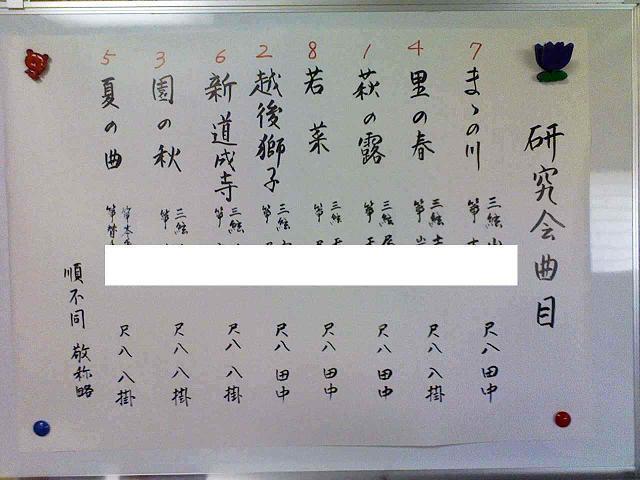 研究会曲目
7 まゝの川 三絃 箏 尺八 田中
4 里の春 三絃 箏 尺八 八掛
1 萩の露 三絃 箏 尺八 田中
8 若菜 三絃 箏 尺八 田中
2 越後獅子 三絃 箏 尺八 田中
6 新道成寺 三絃 箏 尺八 八掛
3 園の秋 三絃 箏 尺八 八掛
5 夏の曲 箏本手 箏替手 尺八 八掛
順不同 敬称略